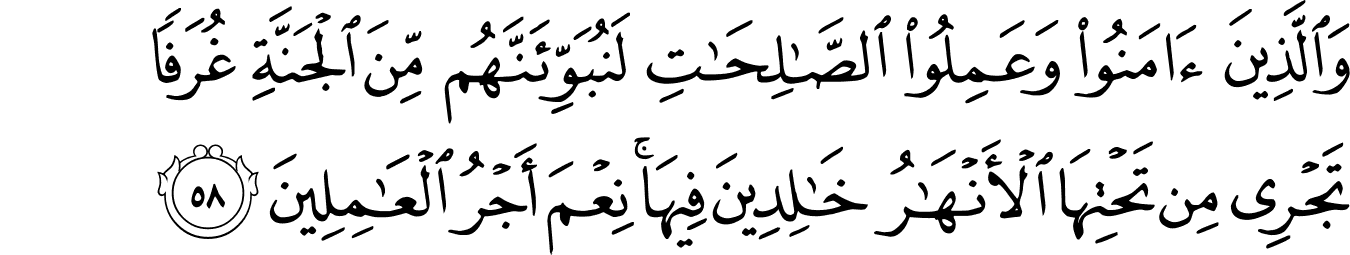 وَٱلَّذِينَ ءَامَنُوا۟ وَعَمِلُوا۟ ٱلصَّـٰلِحَـٰتِ لَنُبَوِّئَنَّهُم مِّنَ ٱلْجَنَّةِ غُرَفًا
تَجْرِى مِن تَحْتِهَا ٱلْأَنْهَـٰرُ خَـٰلِدِينَ فِيهَا ۚ نِعْمَ أَجْرُ ٱلْعَـٰمِلِينَ ٥٨